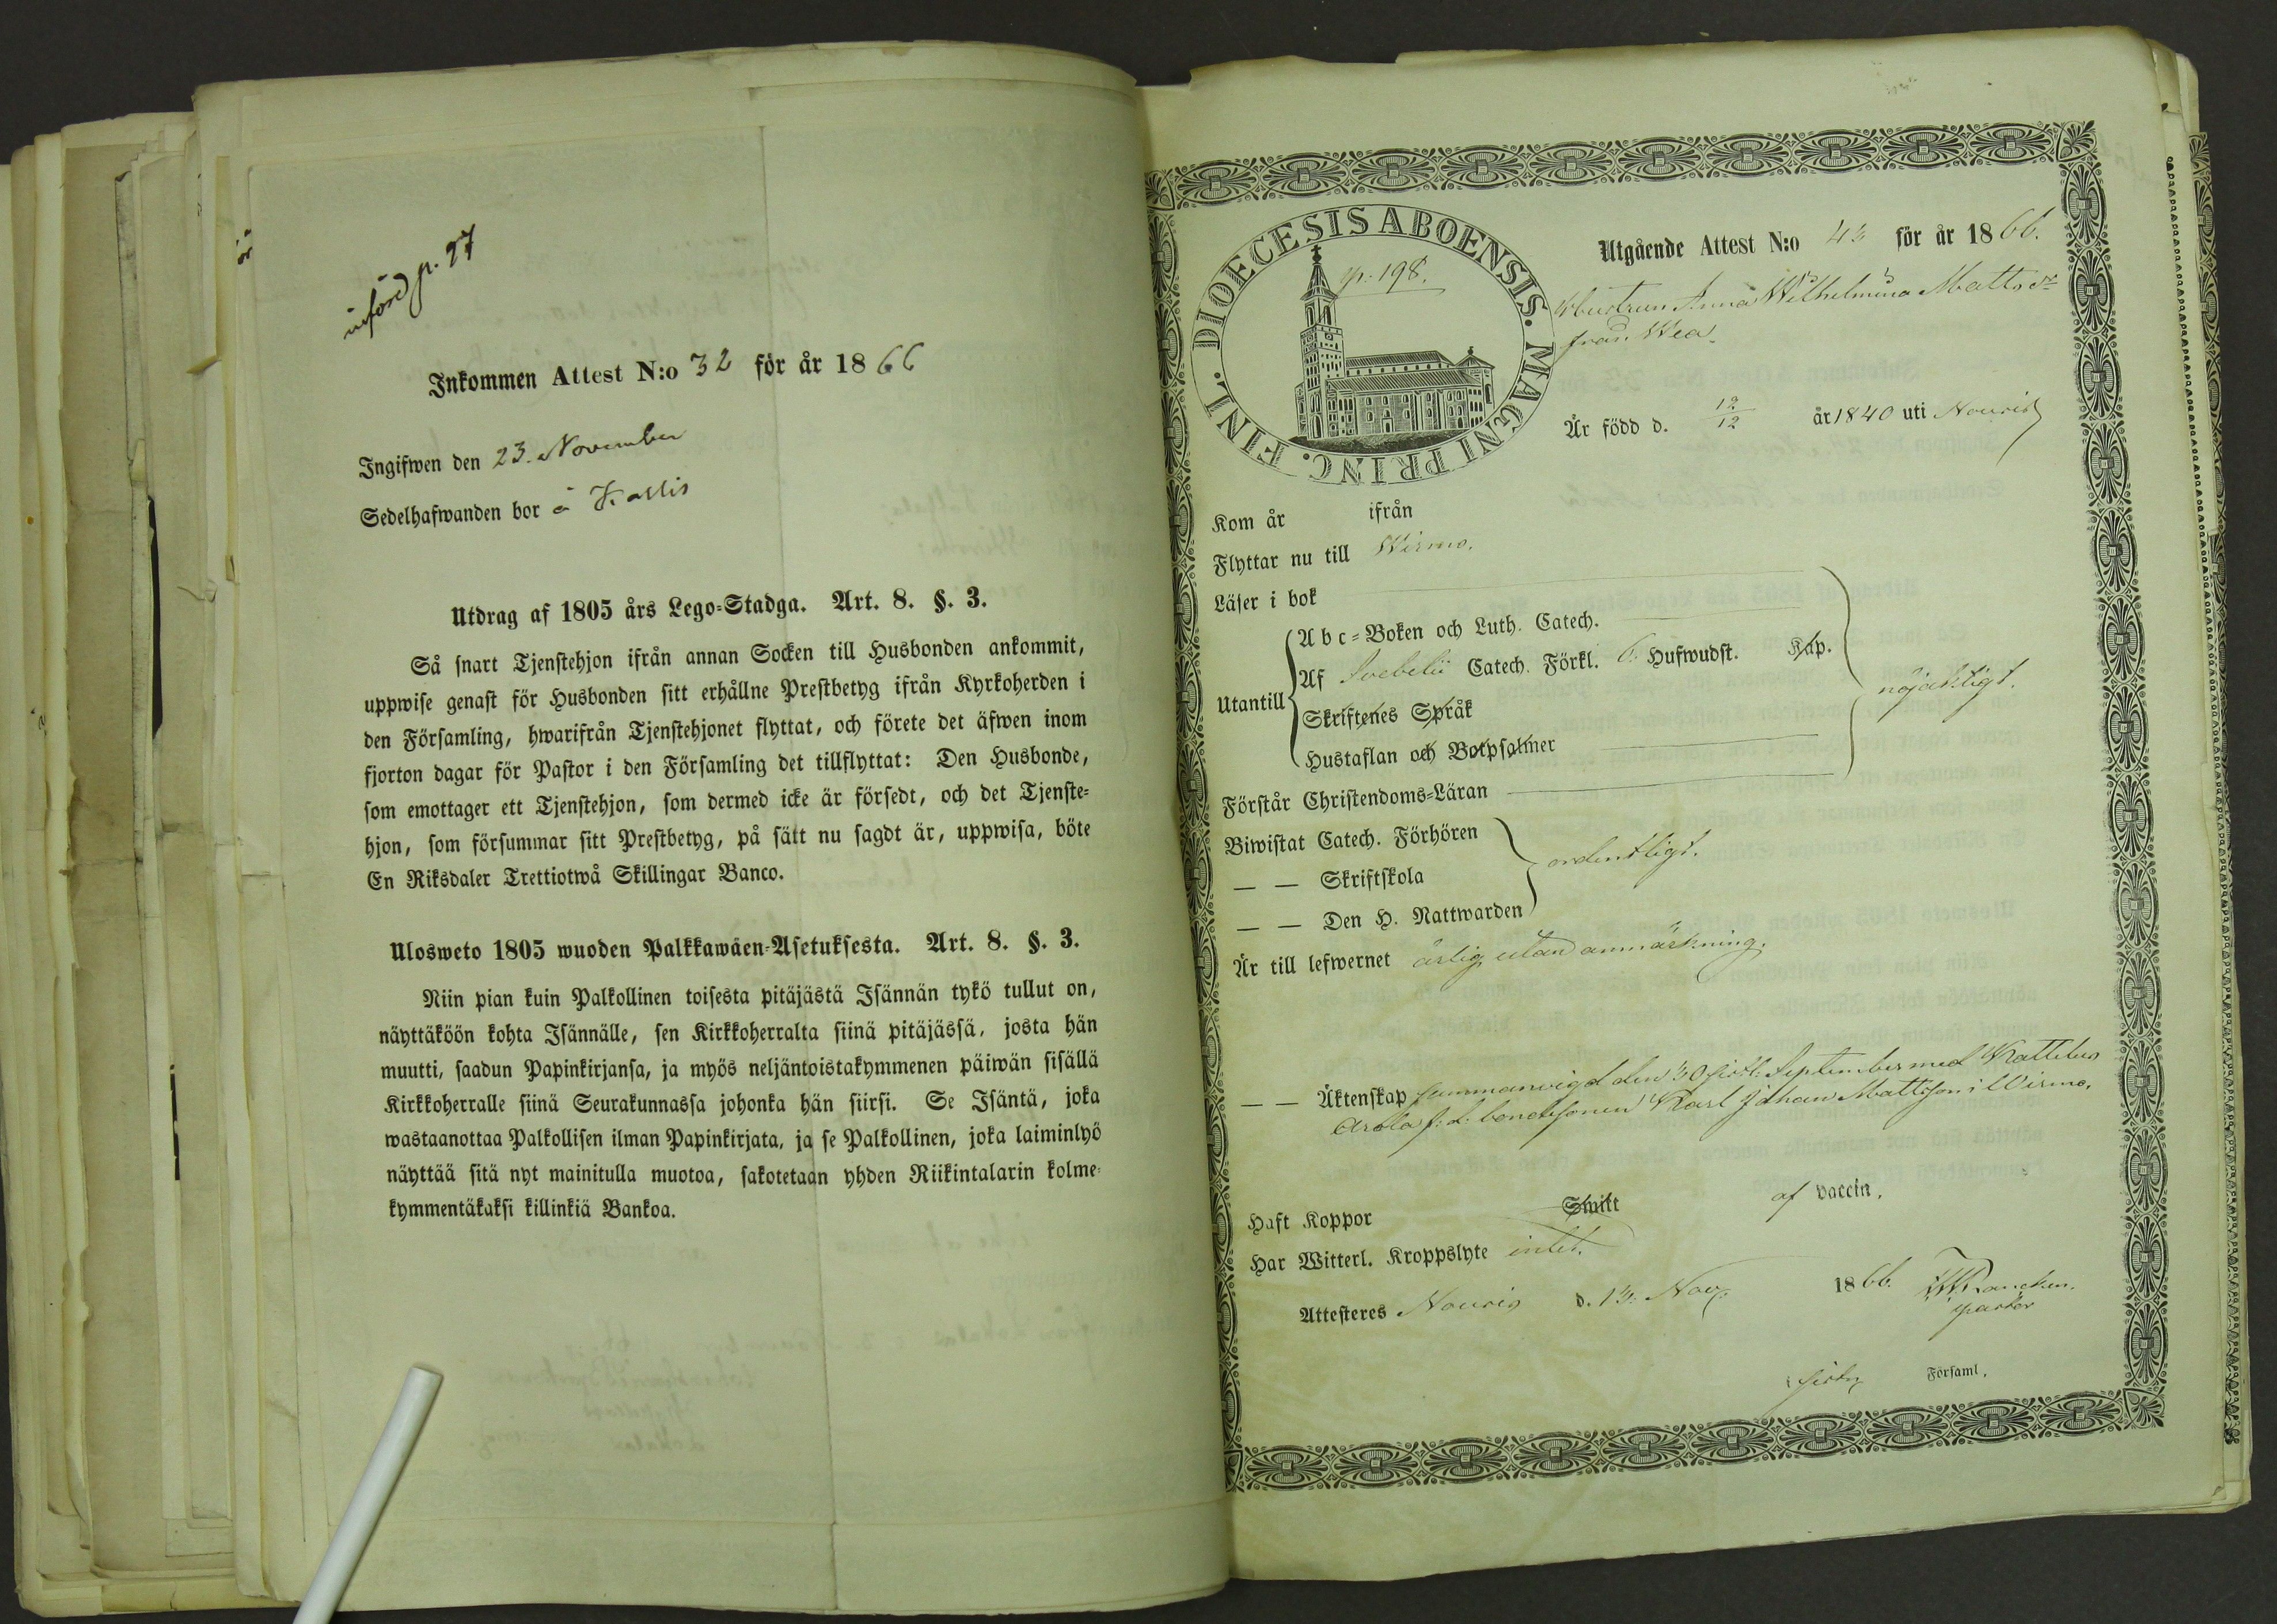 införd p. 27
Inkommen Attest N:o 32 för år 1866
Ingifwen den 23. November
Sedelhafwanden bor å Kallis
Utdrag af 1805 års Lego-Stadga. Art. 8. §. 3.
Så snart Tjenstehjon ifrån annan Socken till Husbonden ankommit,
uppwise genast för Husbonden sitt erhållne Prestbetyg ifrån Kyrkoherden i
den Församling, hwarifrån Tjenstehjonet flyttat, och förete det äfwen inom
fjorton dagar för Pastor i den Församling det tillflyttat: Den Husbonde,
som emottager ett Tjenstehjon, som dermed icke är försedt, och det Tjenste-
hjon, som försummar sitt Prestbetyg, på sätt nu sagdt är, uppwisa, böte
En Riksdaler Trettiotwå Skillingar Banco.
Ulosweto 1805 wuoden Palkkawäen-Asetuksesta. Art. 8. §. 3.
Niin pian kuin Palkollinen toisesta pitäjästä Isännän tykö tullut on,
näyttäköön kohta Isännälle, sen Kirkkoherralta siinä pitäjässä, josta hän
muutti, saadun Papinkirjansa, ja myös neljäntoistakymmenen päiwän sisällä
Kirkkoherralle siinä Seurakunnassa johonka hän siirsi. Se Isäntä, joka
wastaanottaa Palkollisen ilman Papinkirjata, ja se Palkollinen, joka laiminlyö
näyttää sitä nyt mainitulla muotoa, sakotetaan yhden Riikintalarin kolme-
kymmentäkaksi killinkiä Bankoa.
DIOECESIS ABOENSIS. MAGNI PRINC. FINL.
p. 198.
Utgående Attest N:o 43 för år 1866.
Hustrun Anna Wilhelmina Mattsdr
från Wea
Är född d. 12/12 år 1840 uti Nousis
Kom år ifrån
Flyttar nu till Wirmo.
Läser i bok
Utantill
Abc-Boken och Luth. Catech.
Af Svebelii Catech. Förkl. 6. Hufwudst. Kap.
Skriftenes Språk
Hustaflan och Botpsalmer
nöjaktligt.
Förstår Christendoms-Läran
Biwistat Catech. Förhören
— — Skriftskola
— — Den H. Nattwarden
ordentligt.
Är till lefwernet ärlig utan anmärkning.
— — Äktenskap sammanvigd den 30 sistl. September med Kattelus
Arola f. d. bondesonen Karl Johan Mattsson i Wirmo.
Haft Koppor Smitt af vaccin.
Har Witterl. Kroppslyte intet.
Attesteres Nousis d. 13. Nov. 1866.
pastor
Församl.